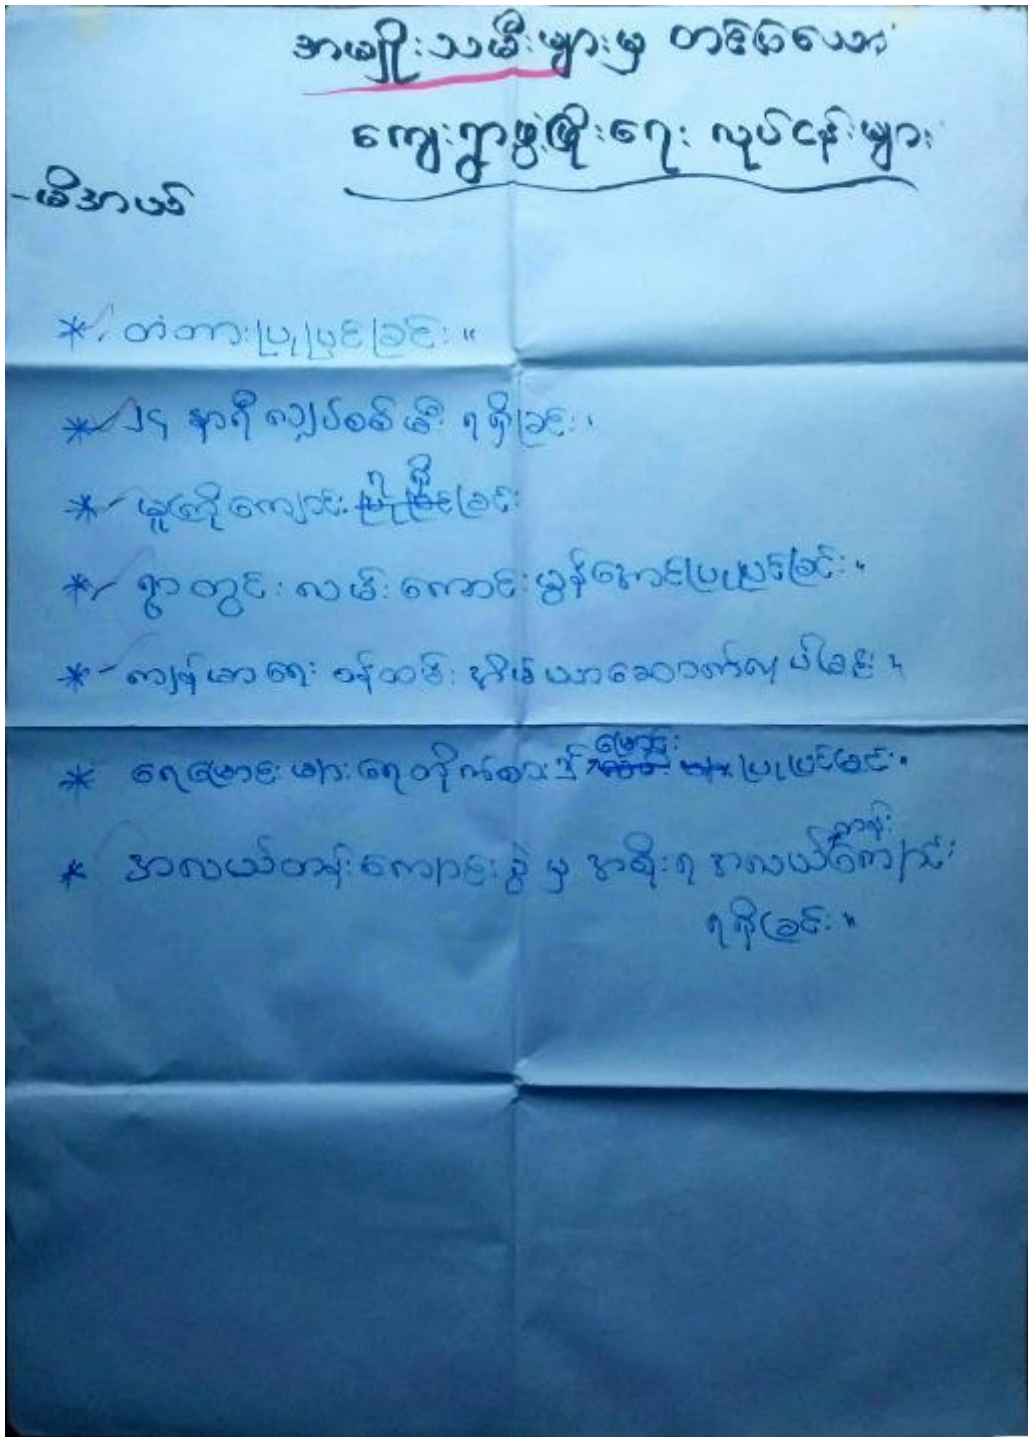 အမျိုးသမီးများမှ တင်ပြသော
ကျေးရွာဖွံ့ဖြိုးရေး လုပ်ငန်းများ
- မိအယ်
* တံတားပြုပြင်ခြင်း။
* ၂၄ နာရီ လျှပ်စစ်မီး ရရှိခြင်း။
* မူကြိုကျောင်း ရရှိခြင်း
* ရွာတွင်း လမ်းကောင်းမွန်အောင်ပြုပြင်ခြင်း။
* ကျန်းမာရေး ဝန်ထမ်း အိမ်သာဆောက်လုပ်ခြင်း။
* ရေမြောင်းများ ရေတိုက်စား မြောင်း ပြုပြင်ခြင်း။
* အလယ်တန်းကျောင်းခွဲမှ အစိုးရ အလယ်တန်းကျောင်း
ရရှိခြင်း။